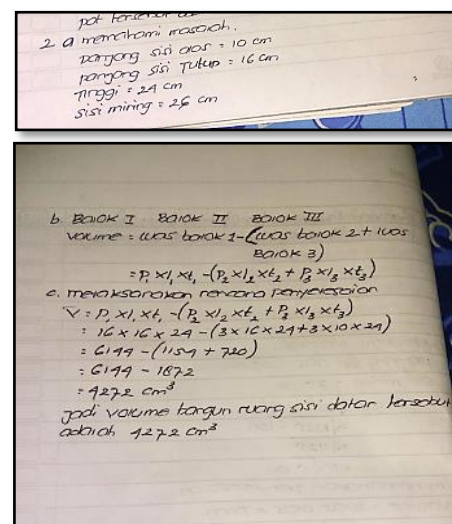 pot tersebut
2 a memahami masalah.
panjang sisi alas = 10 cm
panjang sisi Tutup = 16 cm
Tinggi = 24 cm
sisi miring = 26 cm
b. Balok I Balok II Balok III
volume = luas balok 1-(luas balok 2 + luas
Balok 3)
= P₁ x l₁ x t₁ - (P₂ x l₂ x t₂ + P₃ x l₃ x t₃)
c. melaksanakan rencana penyelesaian
V = P₁ x l₁ x t₁ - (P₂ x l₂ x t₂ + P₃ x l₃ x t₃)
= 16 x 16 x 24 - (3 x 16 x 24 + 3 x 10 x 24)
= 6144 - (1154 + 720)
= 6144 - 1872
= 4272 cm³
Jadi volume bangun ruang sisi datar tersebut
adalah 4272 cm³